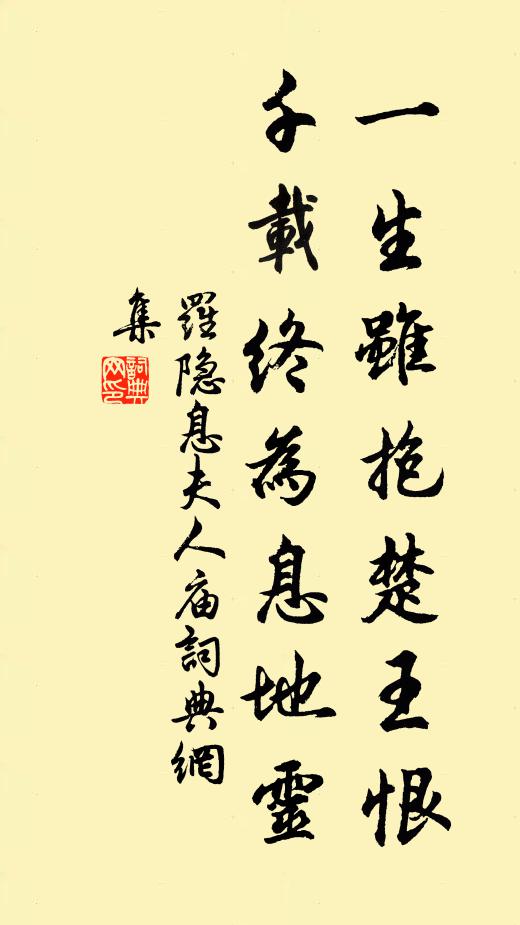 一生雖抱楚王恨
千載終為息地靈
羅隐息夫人庙詞典網
集
詞典
网印